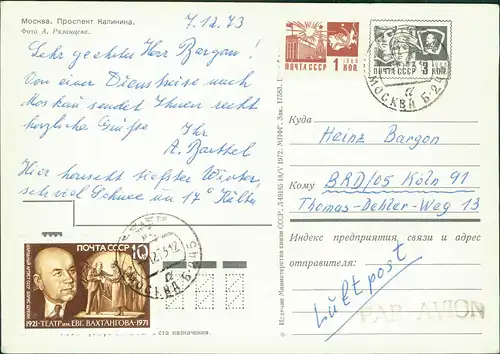 Москва. Проспект Калинина.
Фото А. Рязанцева.
7.12.73
Sehr geehrter Herr Bargon!
Von einer Dienstreise nach
Moskau sendet Ihnen recht
herzliche Grüße
Ihr
A. Barthel
Hier herrscht tiefster Winter,
sehr viel Schnee un 17° Kälte
ПОЧТА СССР 1 КОП.
1966
ПОЧТА СССР 3 КОП.
1966
МОСКВА Б-245
Куда
Heinz Bargon
Кому BRD/05 Köln 91
Thomas-Dehler-Weg 13
Индекс предприятия связи и адрес
отправителя:
Luftpost
PAR AVION
Издание Министерства связи СССР.
1972.
ПОЧТА СССР 10
1921·ТЕАТР им. ЕВГ. ВАХТАНГОВА·1971
МОСКВА Б-245
места назначения.